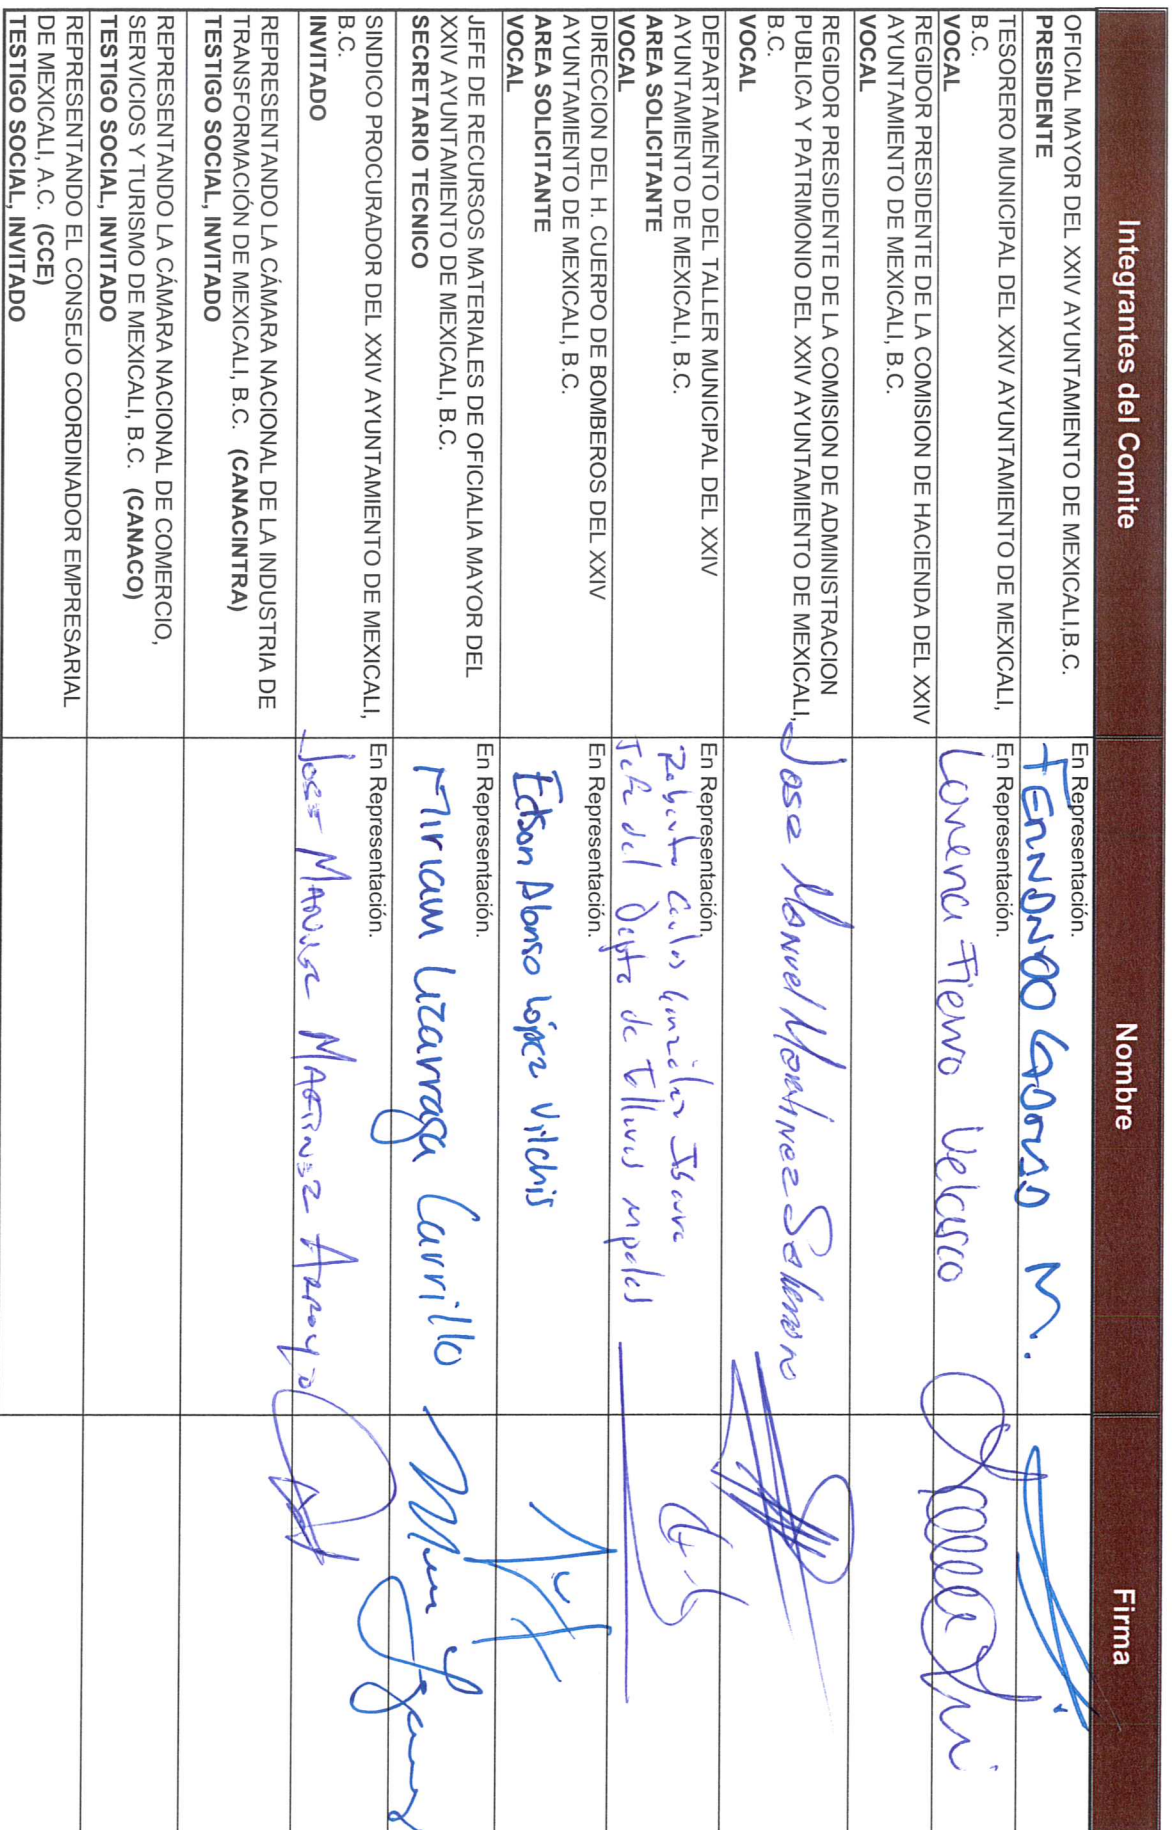 Integrantes del Comite
Nombre
Firma
OFICIAL MAYOR DEL XXIV AYUNTAMIENTO DE MEXICALI,B.C.
PRESIDENTE
En Representación.
FERNANDO M.
TESORERO MUNICIPAL DEL XXIV AYUNTAMIENTO DE MEXICALI,
B.C.
VOCAL
En Representación.
Lorena Fierro Velasco
REGIDOR PRESIDENTE DE LA COMISION DE HACIENDA DEL XXIV
AYUNTAMIENTO DE MEXICALI, B.C.
VOCAL
REGIDOR PRESIDENTE DE LA COMISION DE ADMINISTRACION
PUBLICA Y PATRIMONIO DEL XXIV AYUNTAMIENTO DE MEXICALI,
B.C.
VOCAL
Jose Manuel Martinez Salomon
DEPARTAMENTO DEL TALLER MUNICIPAL DEL XXIV
AYUNTAMIENTO DE MEXICALI, B.C.
AREA SOLICITANTE
VOCAL
En Representación.
Roberto Carlos González Ibarra
Jefe del Depto de Talleres mpales
DIRECCION DEL H. CUERPO DE BOMBEROS DEL XXIV
AYUNTAMIENTO DE MEXICALI, B.C.
AREA SOLICITANTE
VOCAL
En Representación.
Edson Alonso López Vilchis
JEFE DE RECURSOS MATERIALES DE OFICIALIA MAYOR DEL
XXIV AYUNTAMIENTO DE MEXICALI, B.C.
SECRETARIO TECNICO
En Representación.
Miriam Lizarraga Carrillo
SINDICO PROCURADOR DEL XXIV AYUNTAMIENTO DE MEXICALI,
B.C.
INVITADO
En Representación.
JOSE MANUEL MARTINEZ ARROYO
REPRESENTANDO LA CÁMARA NACIONAL DE LA INDUSTRIA DE
TRANSFORMACIÓN DE MEXICALI, B.C. (CANACINTRA)
TESTIGO SOCIAL, INVITADO
REPRESENTANDO LA CÁMARA NACIONAL DE COMERCIO,
SERVICIOS Y TURISMO DE MEXICALI, B.C. (CANACO)
TESTIGO SOCIAL, INVITADO
REPRESENTANDO EL CONSEJO COORDINADOR EMPRESARIAL
DE MEXICALI, A.C. (CCE)
TESTIGO SOCIAL, INVITADO